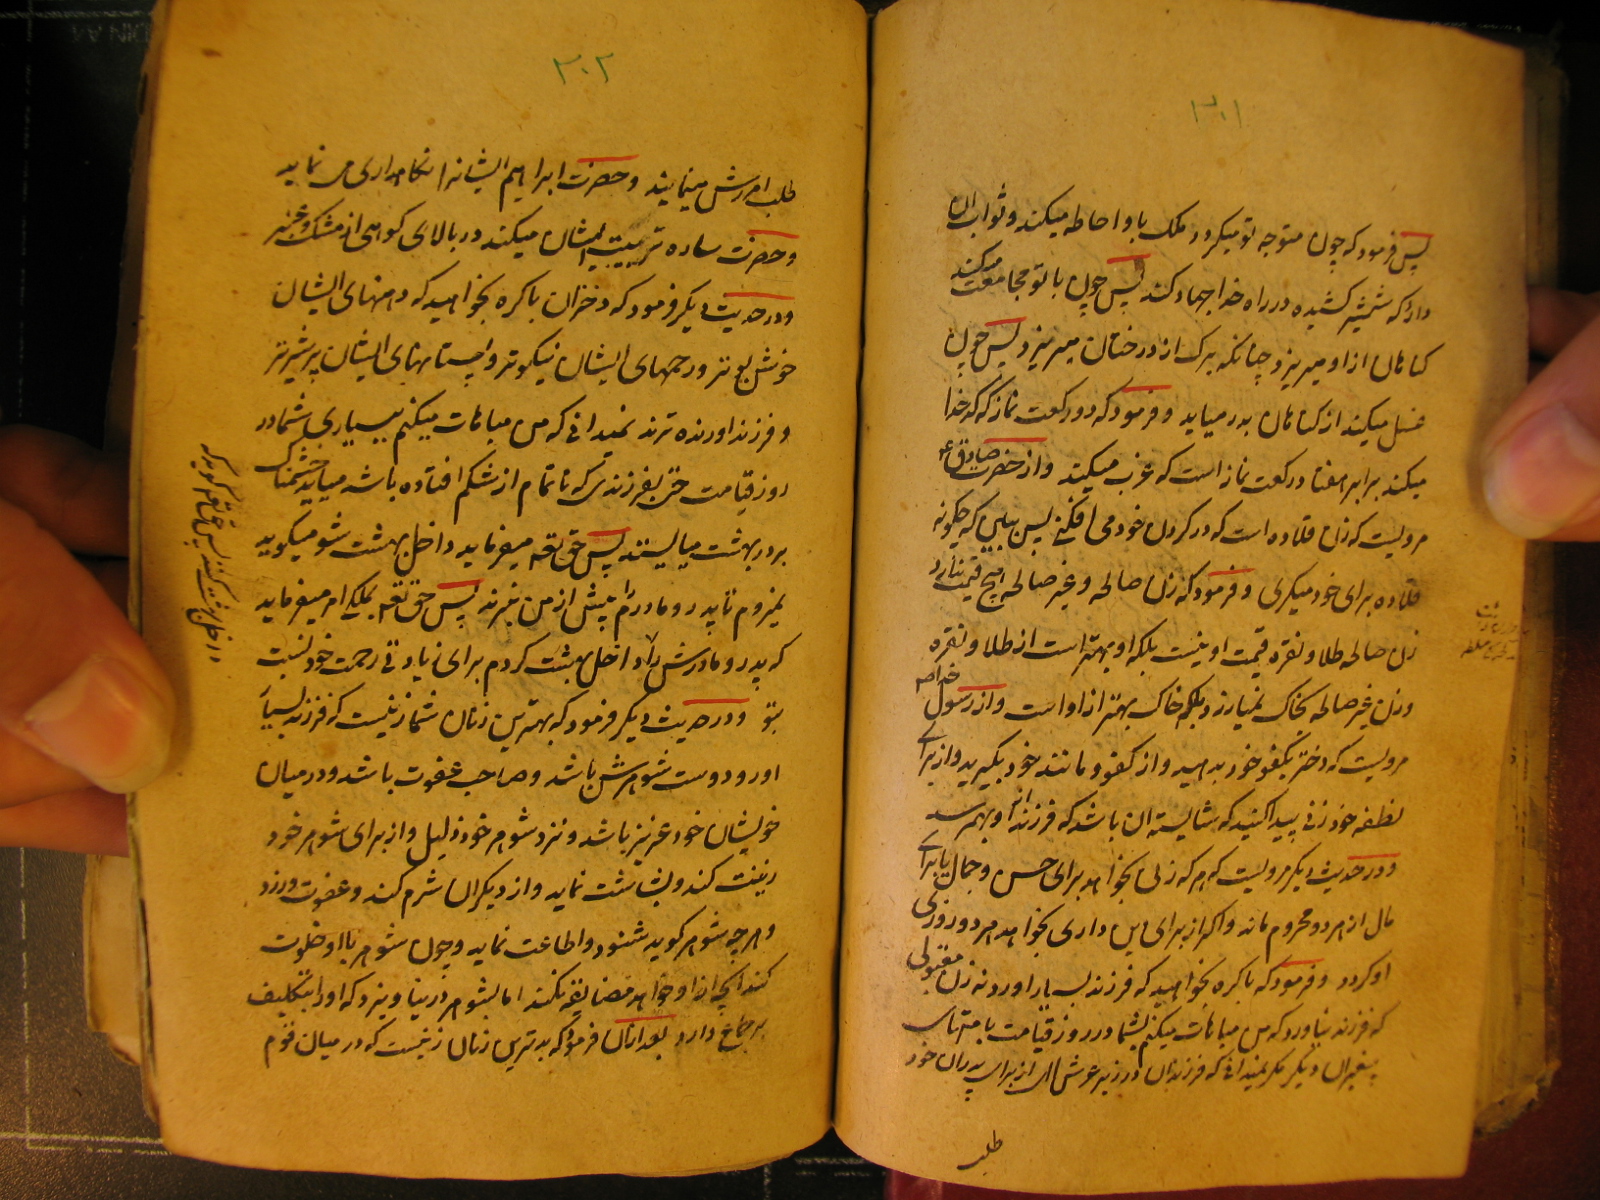 ۳۰۱
پس فرمود که چون متوجه تو میکرد دو ملک باو احاطه میکند و ثواب ان
دارد که شمشیر کشیده در راه خدا جهاد کند پس چون با تو مجامعت میکند
کناهان ازو میریزد چنانکه برک از درختان میریزد پس چون
غسل میکند از کناهان بدر میاید و فرمود که دو رکعت نماز که کدخدا
میکند برابر هفتاد رکعت نماز است که عزب میکند و از حضرت صادق ع
مرویست که زن قلاده است که در کردن خود می افکنی پس ببین که چکونه
قلاده برای خود میکیری و فرمود که زن صالحه و غیر صالحه هیچ قیمت ندارد
زن صالحه طلا و نقره قیمت او نیست بلکه او بهتر است از طلا و نقره
و زن غیر صالحه بخاک نمیارزد بلکه خاک بهتر از او است و از رسول خدا ص
مرویست که دختر بکفو خود بدهید و از کفو و مانند خود بکیرید و از برای
نطفه خود زنی پیدا کنید که شایسته ان باشد که فرزند از او بهم رسد
و در حدیث دیکر مرویست که هر که زنی بخواهد برای حسن و جمال یا برای
مال از هر دو محروم ماند و اکر از برای دین داری بخواهد هر دو روزی
او کردد و فرمود که باکره بخواهید که فرزند بسیار اورد و نه زن مقبولی
که فرزند نیاورد که من مباهات میکنم بشما در روز قیامت با امتهای
پیغمبران دیکر مکر نمیدانی که فرزندان در زیر عرش الهی از برای پدران خود
طلب
۳۰۲
طلب امرزش مینمایند و حضرت ابراهیم ایشانرا نکاهداری می نماید
و حضرت ساره تربیت ایشان میکند در بالای کوهی از مشک و عنبر
و در حدیث دیکر فرمود که دختران باکره بخواهید که دهنهای ایشان
خوش بوتر و رحمهای ایشان نیکوتر و پستانهای ایشان پر شیرتر
و فرزند اورنده ترند نمیدانی که من مباهات میکنم ببسیاری شما در
روز قیامت حتی بفرزندی که ناتمام از شکم افتاده باشد میاید خشمناک
بر در بهشت میایستد پس حق تعه میفرماید داخل بهشت شو میکوید
نمیروم تا پدر و مادرم پیش از من نبرند پس حق تعه بملکی امر میفرماید
که پدر و مادرش را داخل بهشت کردم برای زیادتی رحمت خود نسبت
بتو و در حدیث دیکر فرمود که بهترین زنان شما زنیست که فرزند بسیار
اورد و دوست شوهرش باشد و صاحب عفوت باشد و در میان
خویشان خود عزیز باشد و نزد شوهر خود ذلیل و از برای شوهر خود
زینت کند و بشاشت نماید و از دیکران شرم کند و عفوت ورزد
و هر چه شوهر کوید شنود و اطاعت نماید و چون شوهر با او خلوت
کند انچه از او خواهد مضایقه نکند اما بشوهر در نیاویزد که او را بتکلیف
بر جماع دارد بعد ازان فرمود که بدترین زنان زنیست که در میان قوم